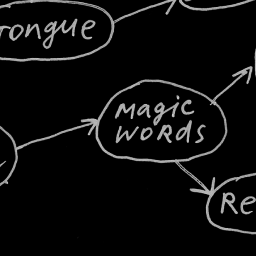 Tongue
MAGIC
WORDS
Re